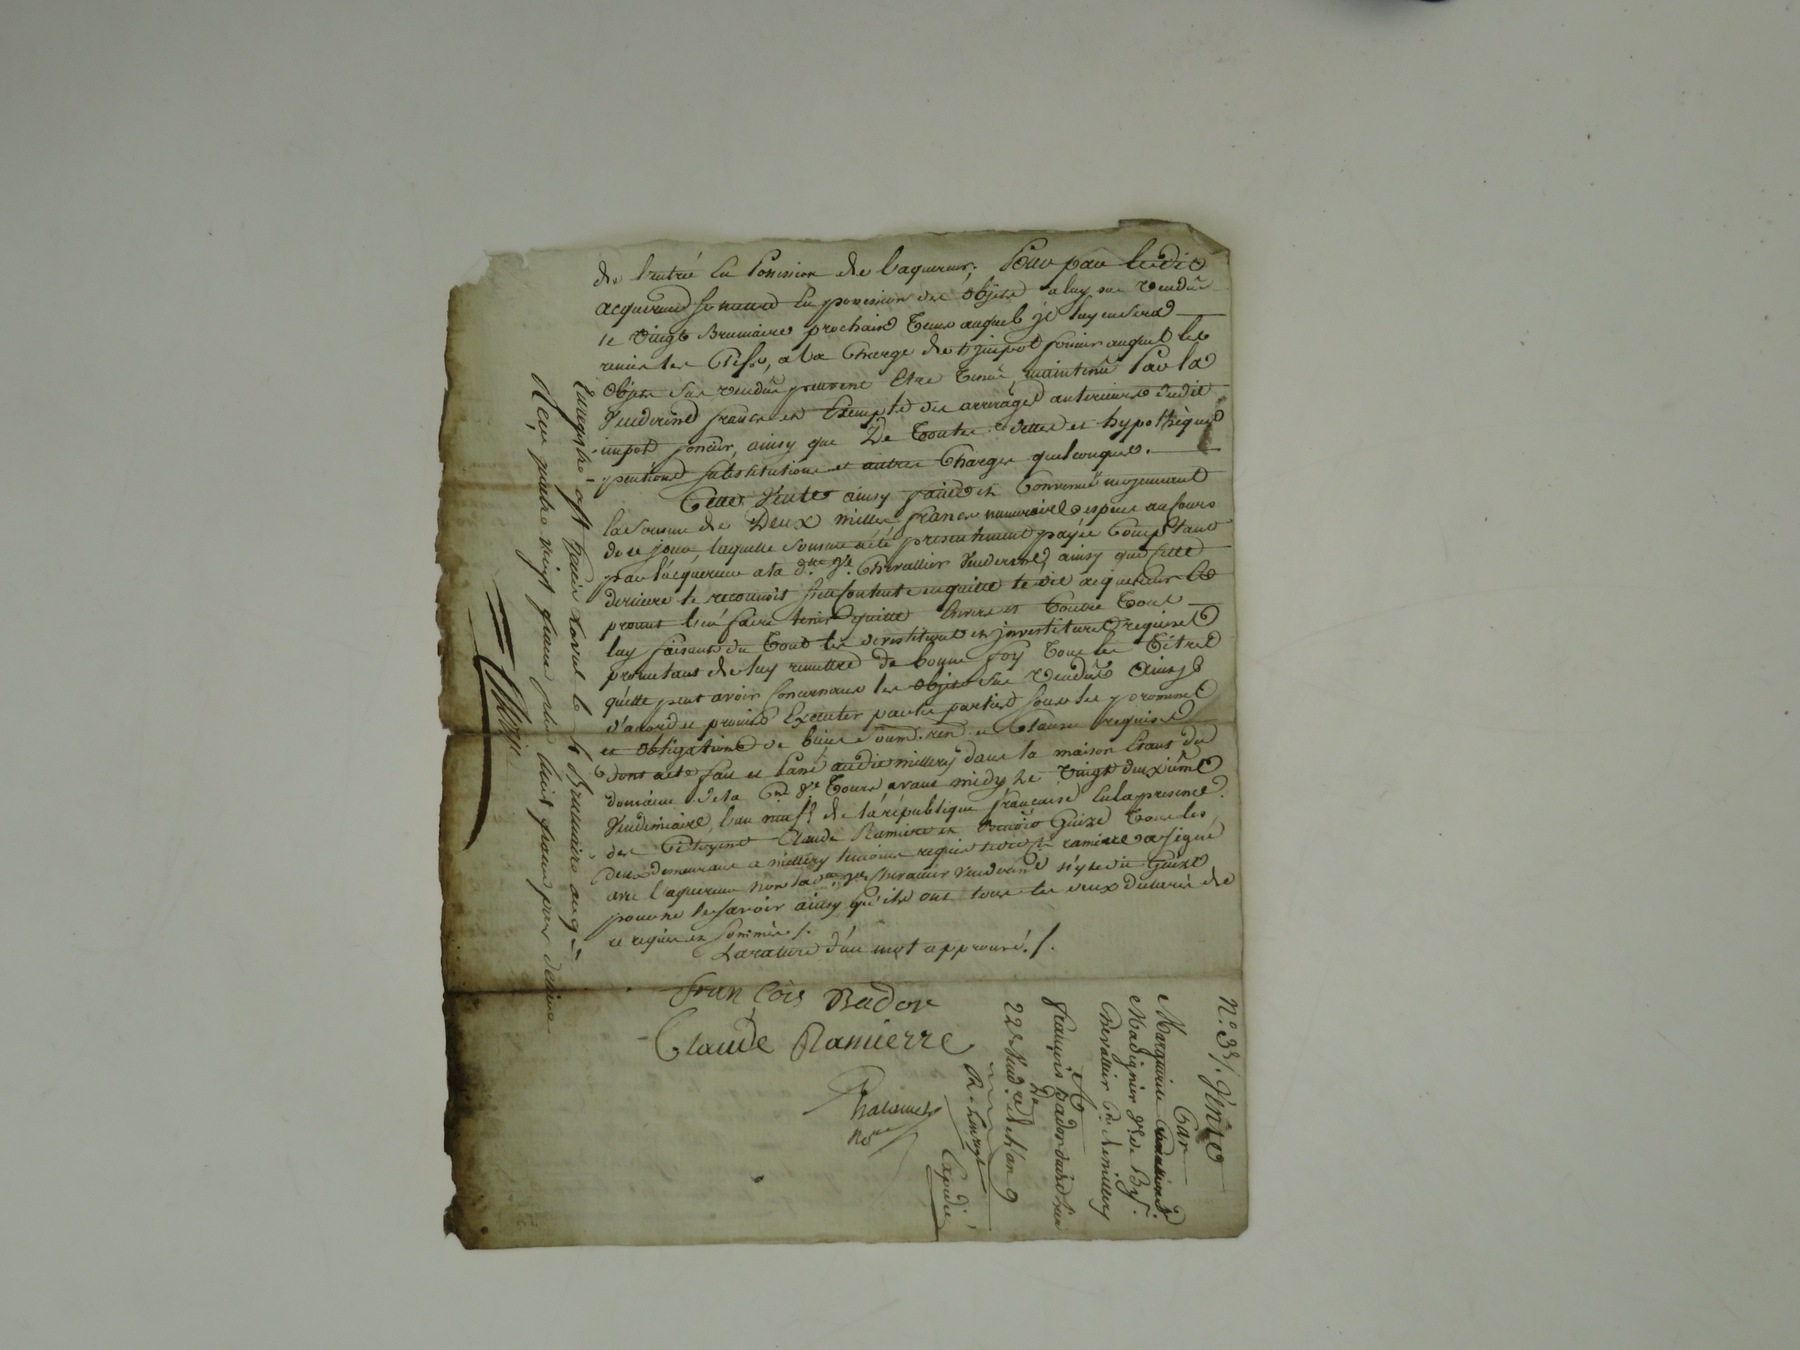 de l'entré en possission de l'aquereur; Pour par ledit
acquereur se mettre en possession des objets a luy sus vendus
le vingt Brumaire prochain tems auquel je luy en sera
remis les Clefs, a la Charge de l'impot foncier auquel les
objets sus vendus peuvent Etre tenus, maintenus Par la
Venderesse francs et Exempts des arrerages anterieurs dudit
impot foncier, ainsy que De toutes dettes et hypothèques
pentions substitutions et autres Charges quelconques.
Cette Vente ainsy faitte et Convenue moyennant
la somme de Deux milles francs numeraire espece au Cours
de ce jour laquelle somme a été presentement payée Comptant
par l'acquereur a la d.te v.e Chevallier Venderesse, ainsy que cette
derniere le reconnoit s'en Contente en quitte le dit acquereur Et
promet l'en faire tenir quitte Envers et Contre tous
luy faisant du tout les devestitures et investitures requises
promettant de luy remettre de bonne foy tous les titres
qu'elle peut avoir Concernant les objets sus Vendus Ainsy
d'accord et promis Executer par les parties sous les promesses
et obligations de biens soum. ren. et Clauses requises
Dont acte fait et Passé audit millery dans la maison Etant du
domaine de la C.ne v.e tours avant midy Le Vingt deuxième
Vendemiaire, l'an neuf de la république française En la presence
des Citoyens Claude Ramierre et Benoit Guize tous les
deux demeurant a millery temoins requis ledit C.n ramierre a signé
avec l'aquereur non la d.te v.e Chevallier Venderesse n'y ledit Guize
pour ne le savoir ainsy qu'ils ont tous les deux declaré de
ce requis et sommés /.
La rature d'un mot approuvé. /.
fran Cois Bador
Claude Ramierre
N.re
Enregistré a St Genis Laval le 5 Brumaire an 9
Reçu quatre vingt francs plus huit francs pour decime
N.º 35. Vente
Par
Marguerite
Madignier v.e de B.y
Chevallier C.ne de millery
A
françois Bador
Du
22 Vend.re de l'an 9
Expedié